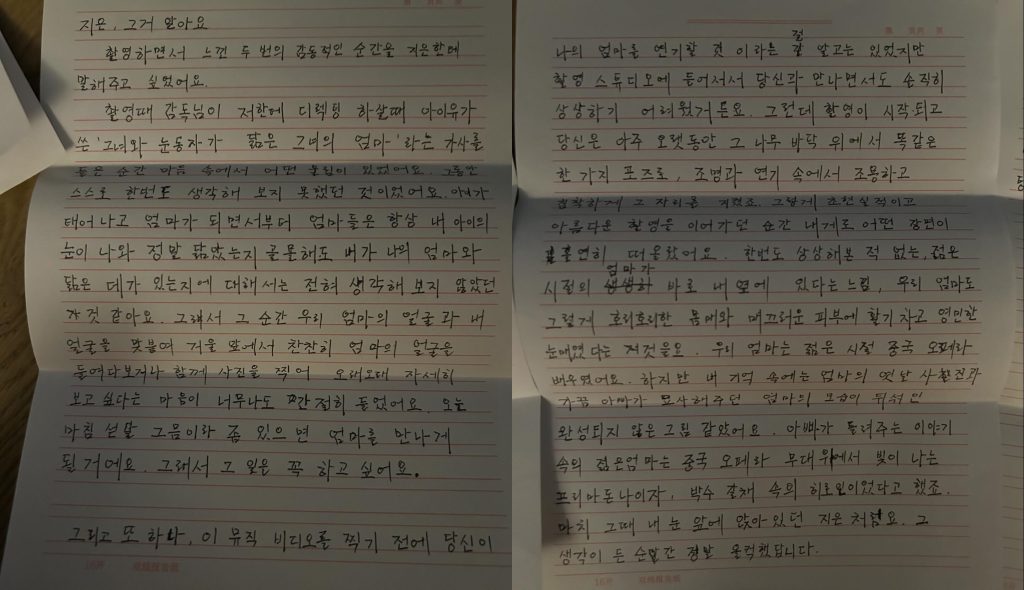 지은, 그거 알아요
촬영하면서 느낀 두 번의 감동적인 순간을 지은한테
말해주고 싶었어요.
촬영때 감독님이 저한테 디렉팅 하실때 아이유가
쓴 '그녀와 눈동자가 닮은 그녀의 엄마' 라는 가사를
들은 순간 마음 속에서 어떤 울림이 있었어요. 그동안
스스로 한번도 생각해 보지 못했던 것이었어요. 아이가
태어나고 엄마가 되면서부터 엄마들은 항상 내 아이의
눈이 나와 정말 닮았는지 골몰해도 내가 나의 엄마와
닮은 데가 있는지에 대해서는 전혀 생각해 보지 않았던
것 같아요. 그래서 그 순간 우리 엄마의 얼굴과 내
얼굴을 맞붙여 거울 앞에서 찬찬히 엄마의 얼굴을
들여다보거나 함께 사진을 찍어 오래오래 자세히
보고 싶다는 마음이 너무나도 간절히 들었어요. 오늘
마침 섣달 그믐이라 좀 있으면 엄마를 만나게
될거예요. 그래서 그 일을 꼭 하고 싶어요.
그리고 또 하나, 이 뮤직 비디오를 찍기 전에 당신이
나의 엄마를 연기할 것 이라는 걸 알고는 있었지만
촬영 스튜디오에 들어서서 당신과 만나면서도 솔직히
상상하기 어려웠거든요. 그런데 촬영이 시작되고
당신은 아주 오랫동안 그 나무 바닥 위에서 똑같은
한 가지 포즈로, 조명과 연기 속에서 조용하고
침착하게 그 자리를 지켰죠. 그렇게 초현실적이고
아름다운 촬영을 이어가던 순간 내게로 어떤 장면이
홀연히 떠올랐어요. 한번도 상상해본 적 없는, 젊은
시절의 엄마가 바로 내 옆에 있다는 느낌, 우리 엄마도
그렇게 호리호리한 몸매와 매끄러운 피부에 활기차고 영민한
눈매였다는 저것을요. 우리 엄마는 젊은 시절 중국 오페라
배우였어요. 하지만 내 기억 속에는 엄마의 옛날 사활전과
가끔 아빠가 묘사해주던 엄마의 모습이 뒤섞인
완성되지 않은 그림 같았어요. 아빠가 들려주는 이야기
속의 젊은엄마는 중국 오페라 무대위에서 빛이 나는
프리마돈나이자, 박수 갈채 속의 히로인이었다고 했죠.
마치 그때 내 눈 앞에 앉아있던 지은 처럼요. 그
생각이 든 순간 정말 울컥했답니다.